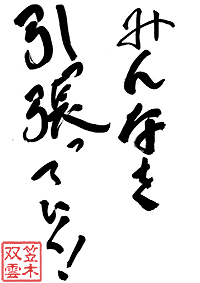 みんなを
引っ張っていく!
笠木
双雲